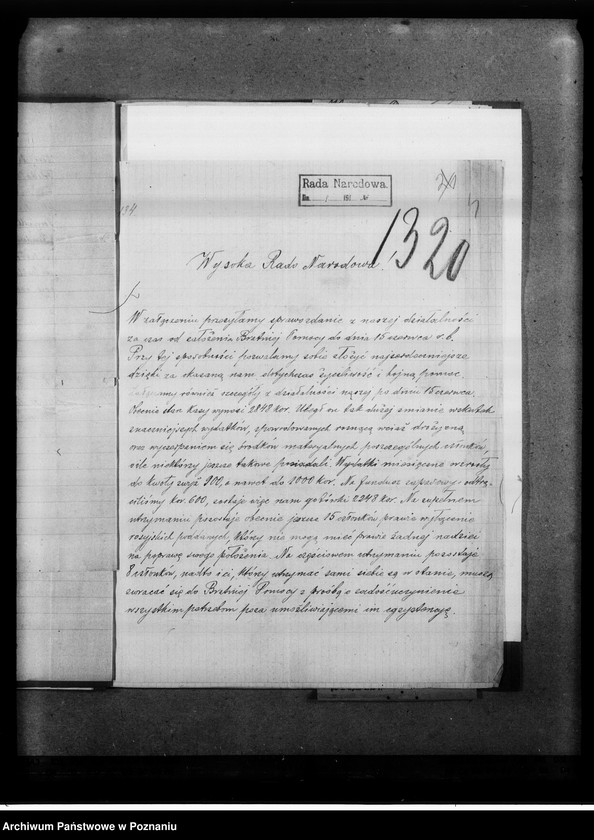 Rada Narodowa.
191 №
1320
Wysoka Rado Narodowa!
W załączeniu przesyłamy sprawozdanie z naszej działalności
za czas od założenia Bratniej Pomocy do dnia 15 czerwca r. b.
Przy tej sposobności pozwalamy sobie złożyć najserdeczniejsze
dzięki za okazaną nam dotychczas życzliwość i hojną pomoc.
również szczegóły z działalności naszej po dniu 15 czerwca.
Obecnie stan kasy wynosi 2848 kor. Uległ on tak dużej zmianie wskutek
znaczniejszych wydatków, spowodowanych rosnącą wciąż drożyzną
oraz wyczerpaniem się środków materyalnych poszczególnych członków,
o ile niektórzy jeszcze takowe posiadali. Wydatki miesięczne wzrosły
do kwoty wyż 900, a nawet do 1000 kor. Na fundusz zapasowy
kor. 600, zostaje więc nam gotówki 2248 kor. Na zupełnem
utrzymaniu pozostaje obecnie jeszcze 15 członków prawie wyłącznie
rosyjskich poddanych, którzy nie mogą mieć prawie żadnej nadziei
na poprawę swego położenia. Na częściowem utrzymaniu pozostaje
8 członków, nadto i ci, którzy utrzymać sami siebie są w stanie, muszą
zwracać się do Bratniej Pomocy z prośbą o zadośćuczynienie
wszystkim potrzebom poza umożliwiającemi im egzystencją.
Archiwum Państwowe w Poznaniu